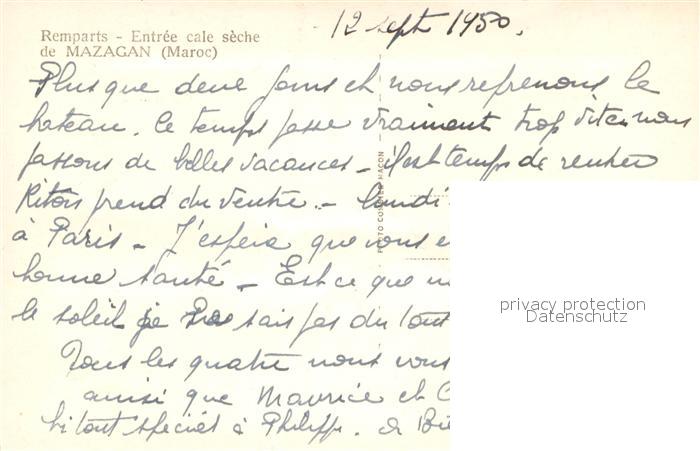 Remparts - Entrée cale sèche
de MAZAGAN (Maroc)
12 sept 1950.
Plus que deux jours et nous reprenons le
bateau. Le temps passe vraiment trop vite nous
passons de belles vacances - il est temps de rentrer
Riton prend du ventre - Lundi
à Paris - J'espère que vous
bonne santé - Est ce que
le soleil je ne sais pas du tout
Tous les quatre nous vous
ainsi que Maurice et
spécial à Philippe.
PHOTO COMBIER MACON
privacy protection
Datenschutz